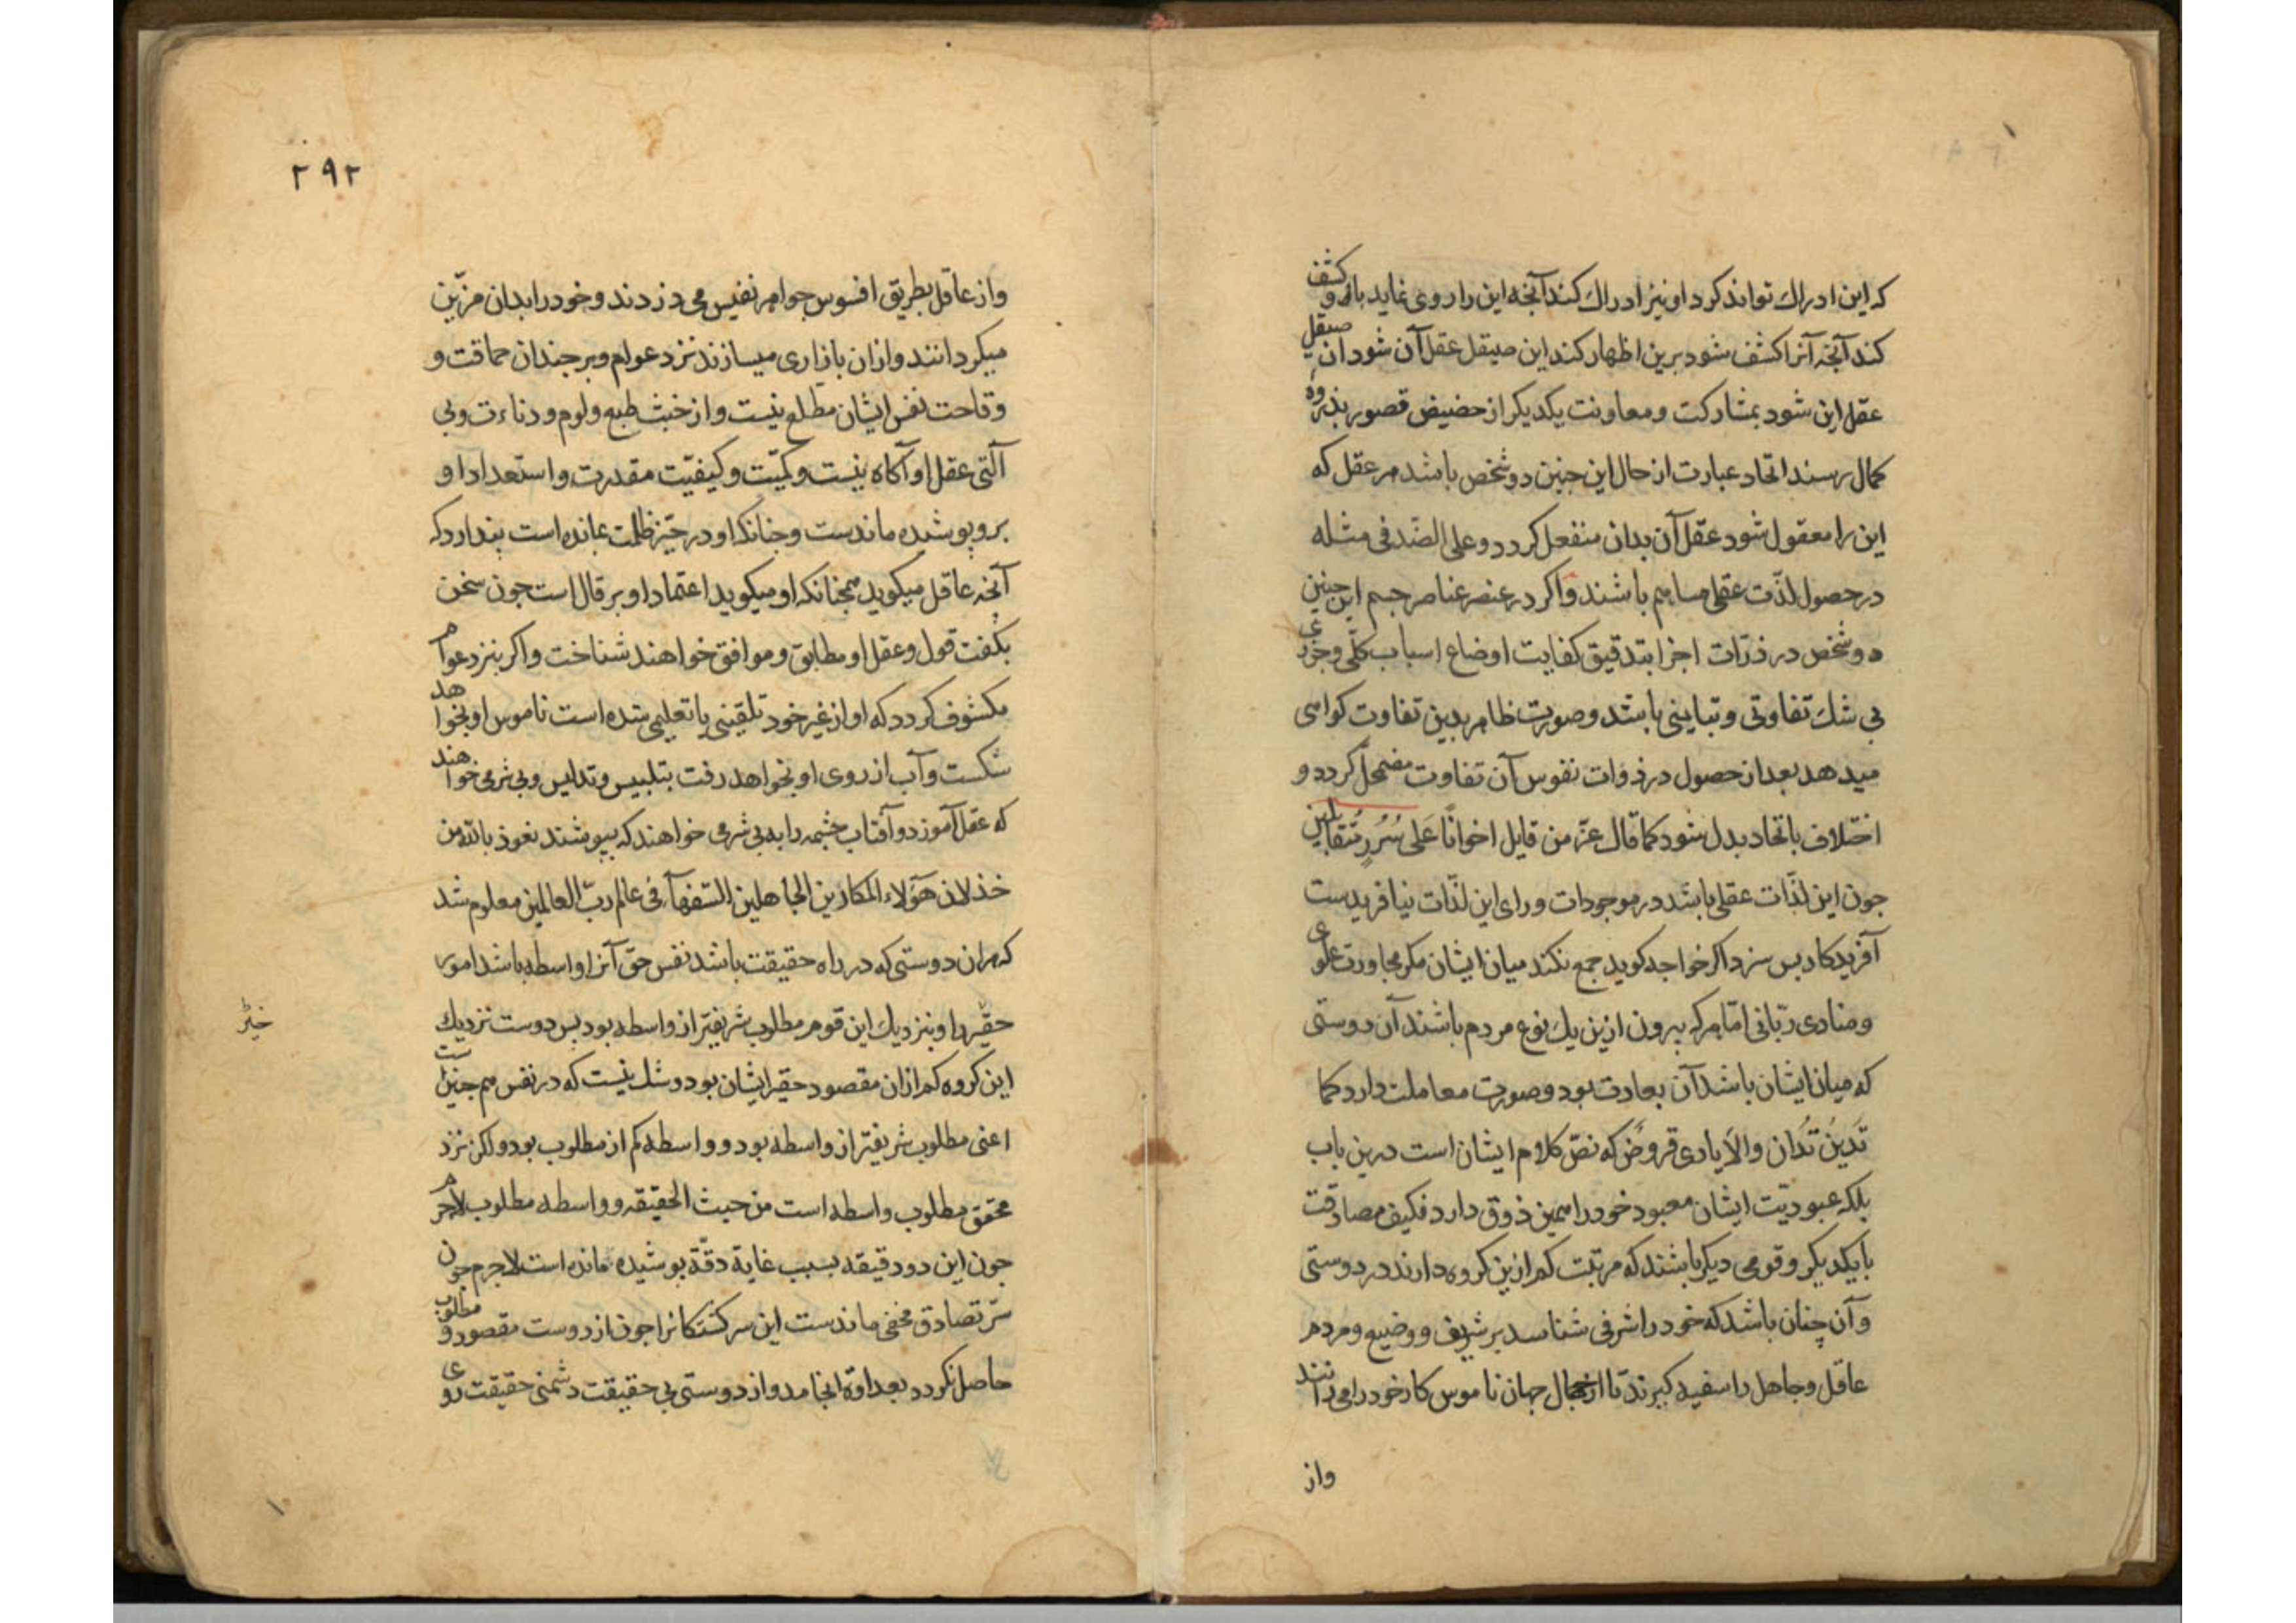 که این ادراك تواند کرد او نیز ادراك کند آنچه این را روی نماید باو کشف
کند آنچه آنرا کشف شود برین اظهار کند این صیقل عقل آن شود ان صیقل
عقل این شود بمشارکت و معاونت یکدیکر از حضیض قصور بذروهٔ
کمال رسند اتحاد عبارت از حال این جنین دو شخص باشد هر عقل که
این را معقول شود عقل آن بدان منفعل کردد و علی الضد فی مثله
در حصول لذّت عقلی مساهم باشند و اکر در عنصر عناصر جسم این جنین
دو شخص در ذرّات اجزا بتدقیق کفایت اوضاع اسباب کلّی و جزوی
بی شك تفاوتی و تباینی باشد و صورت ظاهر بدین تفاوت کواهی
میدهد بعد از حصول در ذوات نفوس آن تفاوت مضمحلّ کردد و
اختلاف باتحاد بدل شود کما قال عزّ من قایل اخوانًا عَلی سُرُرٍ مُتَقابلین
جون این لذّات عقلی باشد در موجودات ورای این لذّات نیافریدست
آفریدکار بس سزد اکر خواجه کوید جمع نکند میان ایشان مکر مجاورت علوی
و منادی ربّانی امّا هرکه بیرون ازین یك نوع مردم باشند آن دوستی
که میان ایشان باشد آن بعادت بود و صورت معاملت دارد کما
تَدینُ تُدان والایادی قروضٌ که نصّ کلام ایشان است درین باب
بلکه عبودیّت ایشان معبود خود را همین ذوق دارد فکیف مصادقت
با یکدیکر و قومی دیکر باشند که مرتبت کم ازین کروه دارند در دوستی
و آن چنان باشد که خود را شرفی شناسد بر شریف و وضیع و مردم
عاقل و جاهل را سفیه کیرند تا از جهال جهان ناموس کار خود را می دانند
واز
۲۹۲
واز عاقل بطریق افسوس جواهر نفیس می دزدند و خود را بدان مزّین
میکردانند وازان بازاری میسازند نزد عوام و بر جندان حماقت و
وقاحت نفس ایشان مطلع نیست و از خبث طبع و لوم و دناءت و بی
آلتی عقل او آکاه نیست و کمیّت و کیفیّت مقدرت و استعداد او
برو پوشیده ماندست و جنانکه او در حیّز ظلمت بمانده است پندارد که
آنچه عاقل میکوید همچنانکه او میکوید اعتماد او بر قال است جون سخن
بکفت قول و عقل او مطابق و موافق خواهند شناخت واکر بنزد عوام
مکشوف کردد که او از غیر خود تلقینی یا تعلیمی شده است ناموس او بخواهد
شکست و آب از روی او بخواهد رفت بتلبیس و تدلیس و بی شرمی خواهند
که عقل آموزد و آفتاب چشمه را به بی شرمی خواهند که بپوشند نعوذ بالله من
خذلان هؤلاء المکارین الجاهلین السّفهآء فی عالم ربّ العالمین معلوم شد
که هران دوستی که در راه حقیقت باشد نفس حقّ آنرا واسطه باشد امور
حقیر را و بنزدیك این قوم مطلوب شریفتر از واسطه بود بس دوست نزدیك
خیّر
این کروه کم ازان مقصود حقیر ایشان بود و شك نیست که در نفس هم جنین است
اعنی مطلوب شریفتر از واسطه بود و واسطه کم از مطلوب بود ولکن نزد
محقق مطلوب واسطه است من حیث الحقیقه و واسطه مطلوب لاجرم
جون این دو دقیقه بسبب غایة دقّة بوشیده مانده است لاجرم جون
سرّ تصادق مخفی ماندست این سرکشتکانرا جون از دوست مقصود و مطلوب
حاصل نکردد بعداوة انجامد و از دوستی بی حقیقت دشمنی حقیقت روی